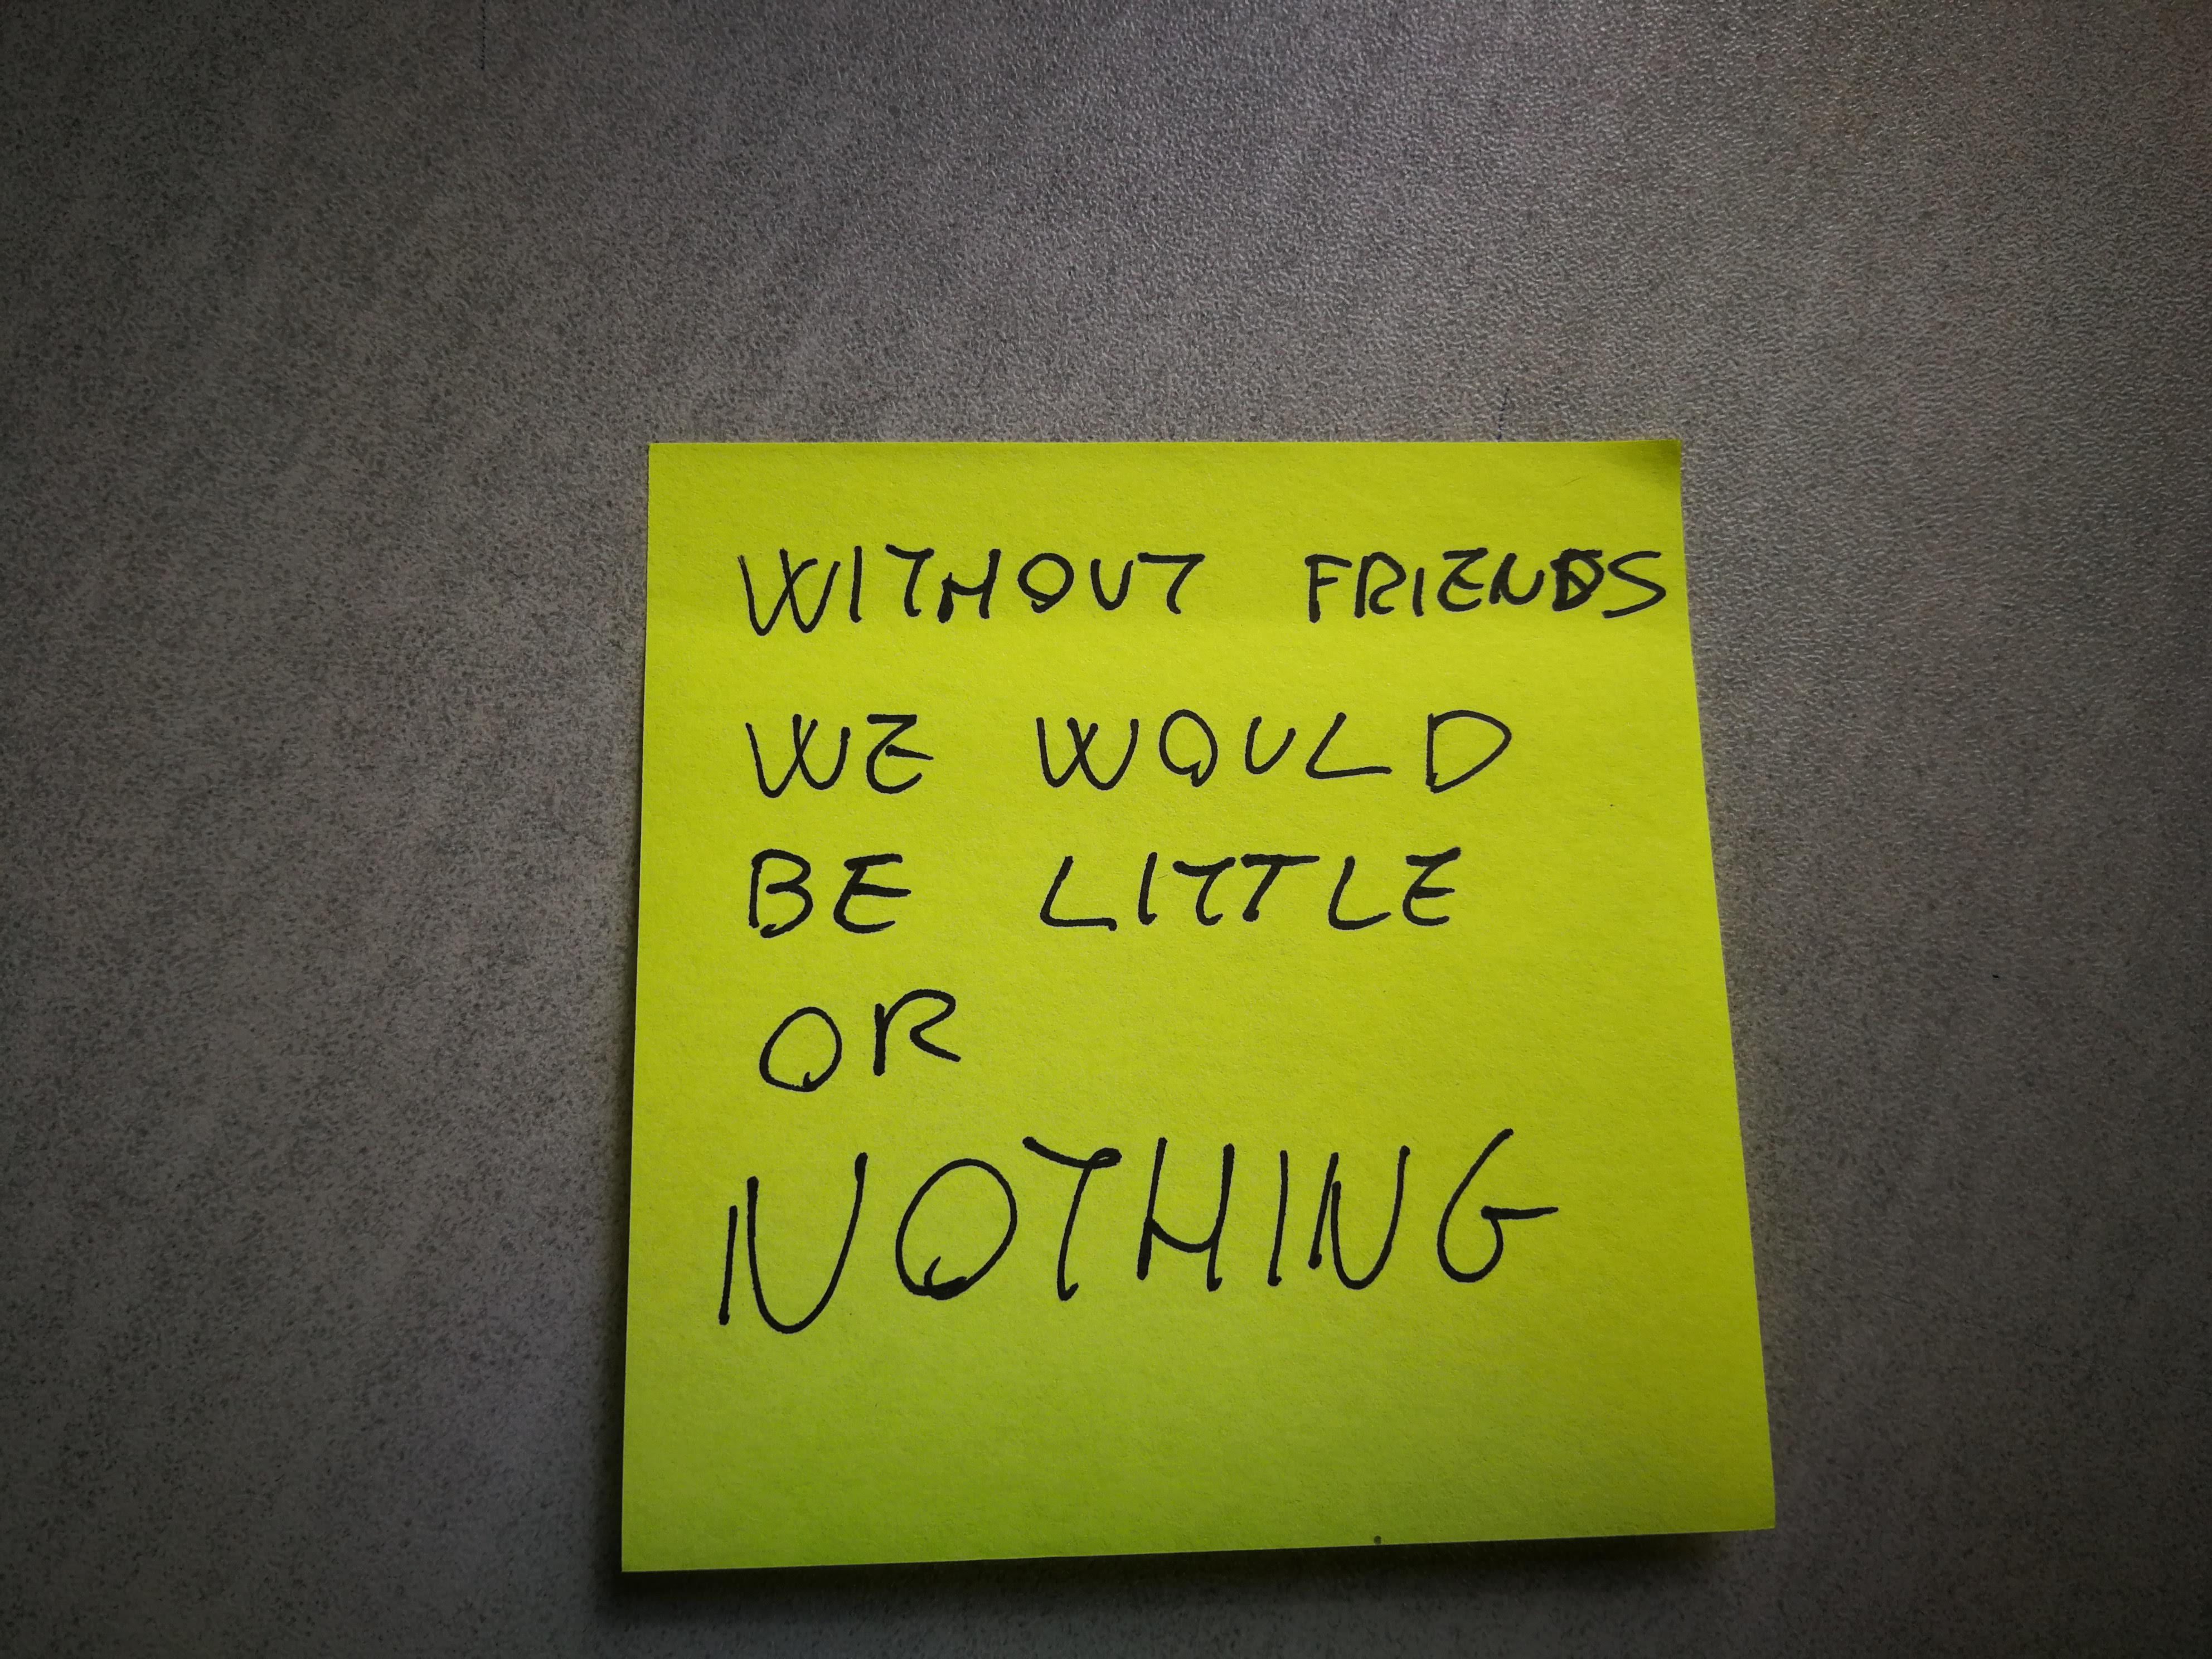 WITHOUT FRIENDS
WE WOULD
BE LITTLE
OR
NOTHING